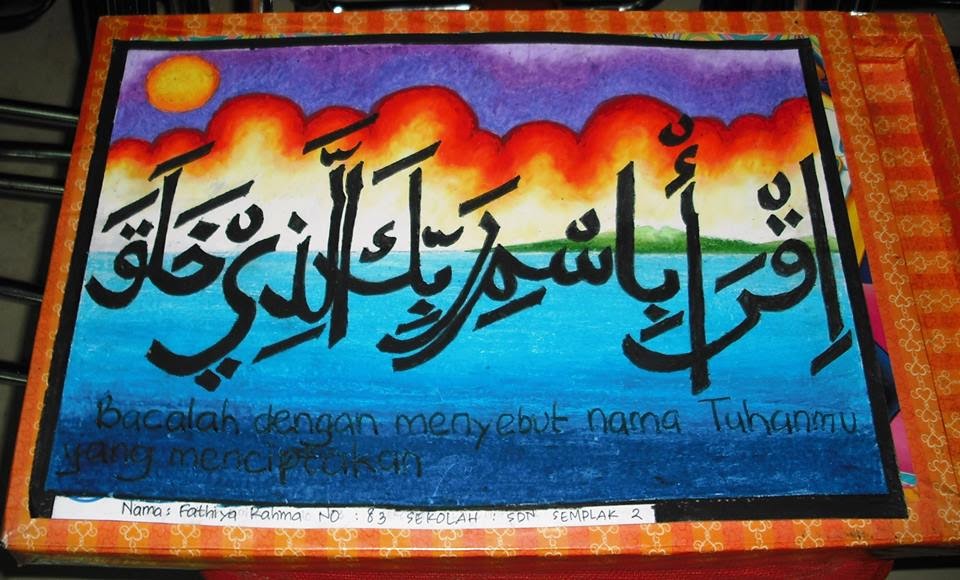 اِقْرَأْ بِاسْمِ رَبِّكَ الَّذِيْ خَلَقَ
Bacalah dengan menyebut nama Tuhanmu
yang menciptakan
Nama: Fathiya Rahma NO : 83 SEKOLAH : SDN SEMPLAK 2